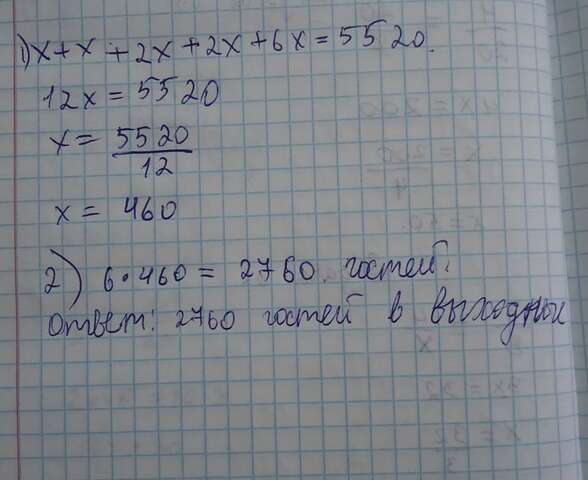 1) x + x + 2x + 2x + 6x = 5520.
12x = 5520
x = 5520/12
x = 460
2) 6 · 460 = 2760. гостей.
ответ: 2760 гостей в выходные